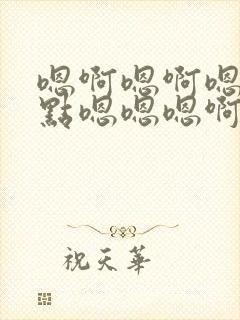 嗯啊嗯啊嗯
點嗯嗯嗯啊
祝天華